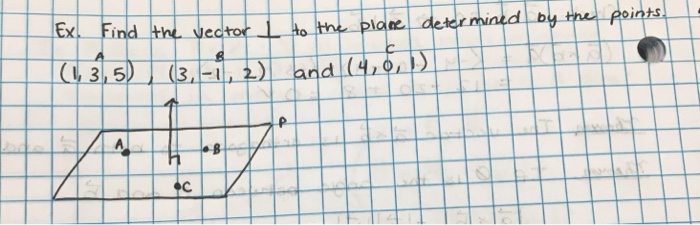 Ex. Find the vector ⊥ to the plane determined by the points.
A B C
(1, 3, 5), (3, -1, 2) and (4, 0, 1)
P
A B
C